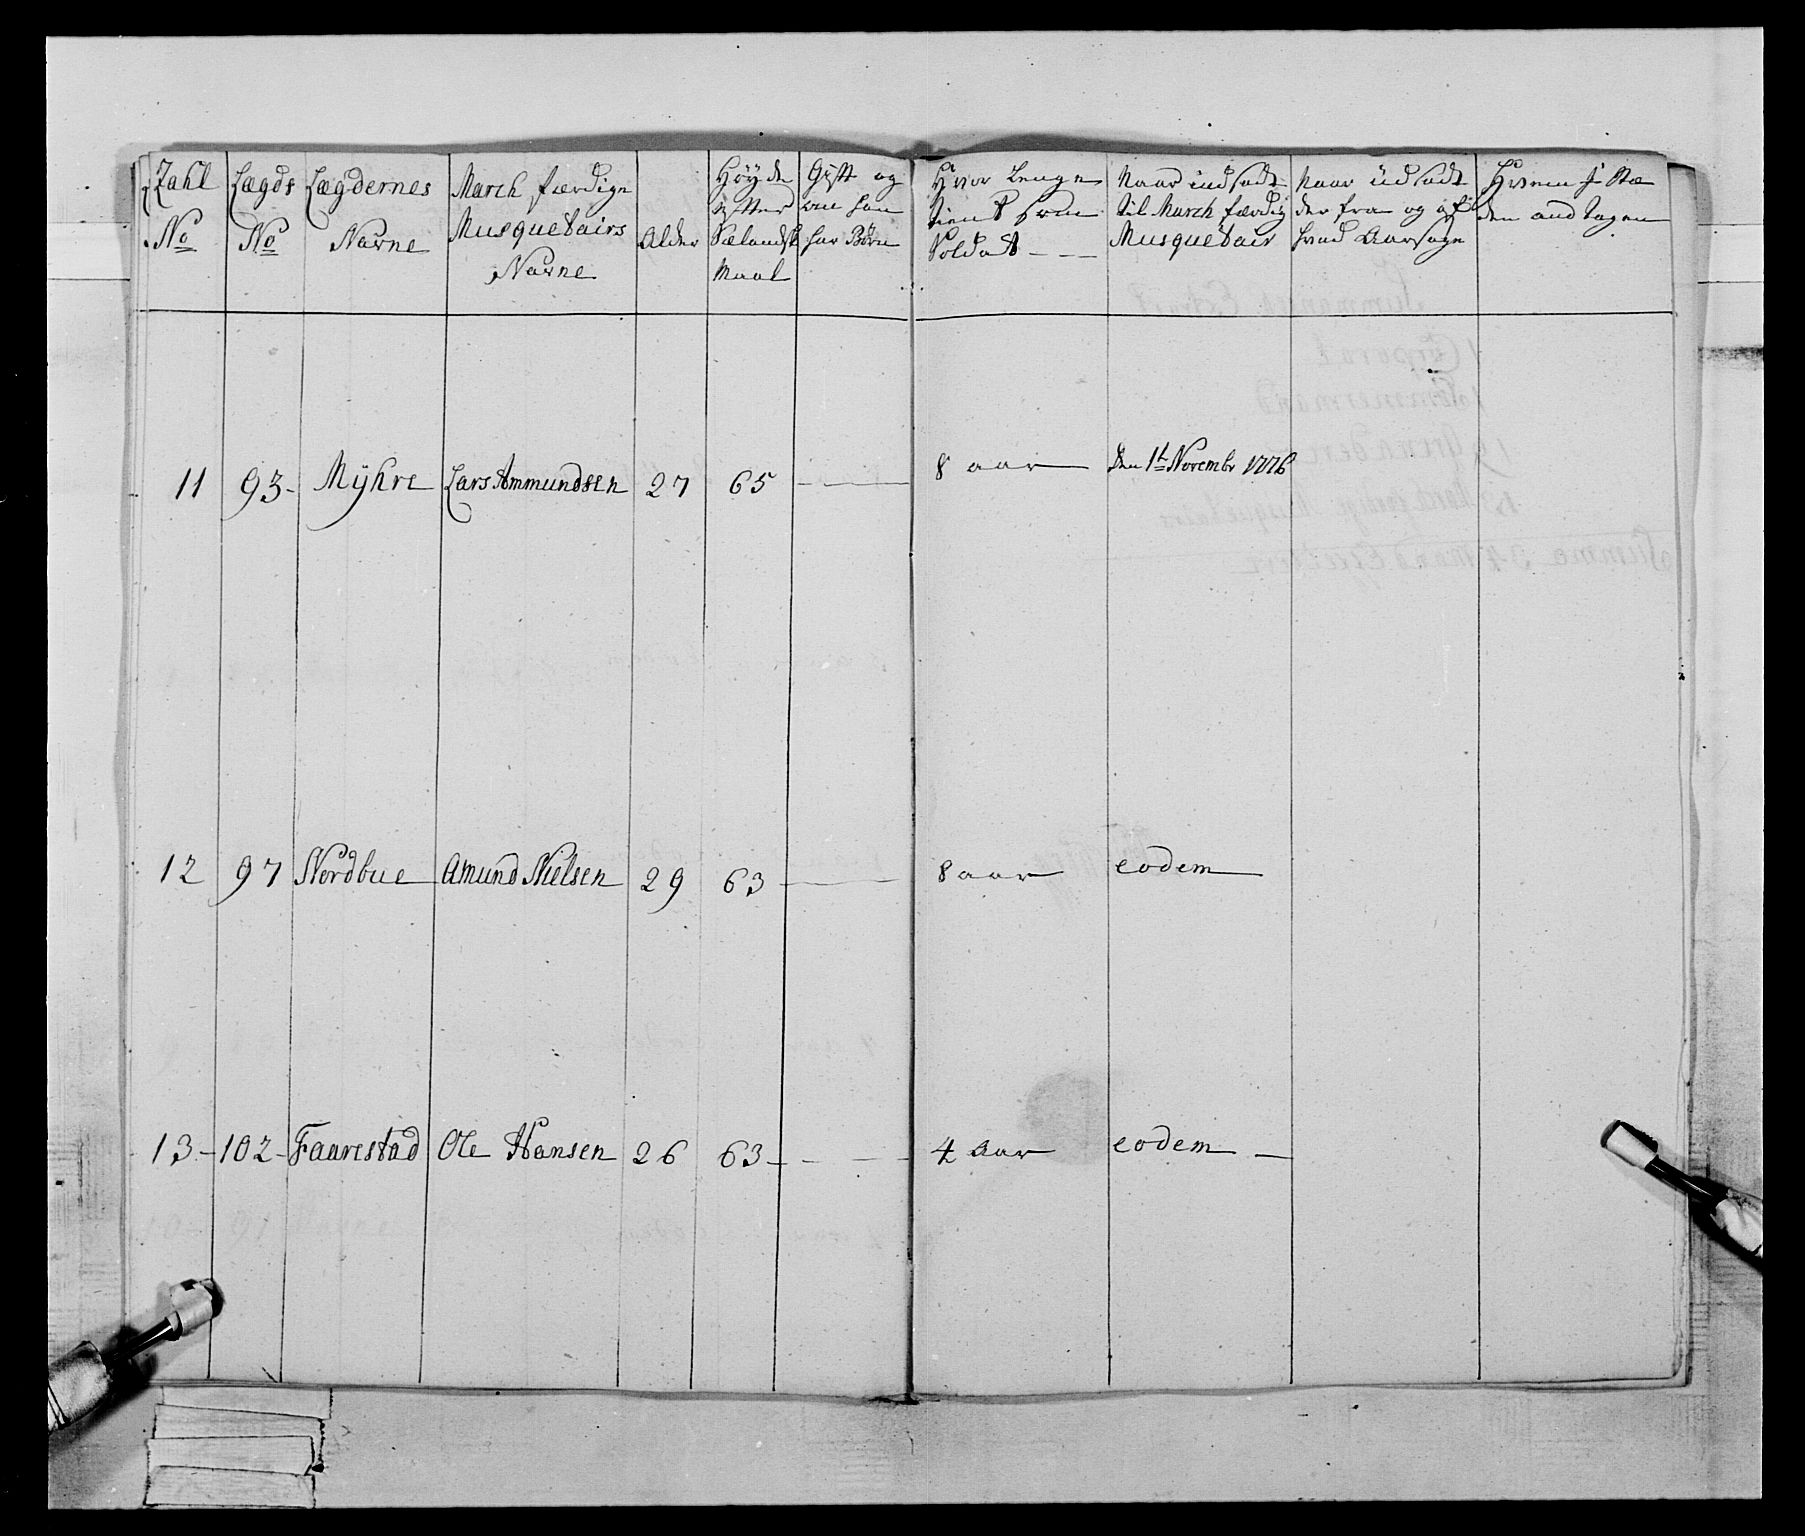 Zahl No
Lægds No
Lægdernes Navne
March færdige Musquetairs Navne
Alder
Höyde efter Sælandsk Maal
Gift og om han har Börn
Hvor Lenge tient som Soldat
Naar üdsadt til March færdig Musquetair
Naar üdsadt der fra og af hvad Aarsage
Hvem i Stæden andtagen
11 93 Mÿhre Lars Ammundsen 27 65 8 aar Den 1te Novembr 1776
12 97 Nordbue Amund Nielsen 29 63 8 aar eodem
13 102 Faarestad Ole Hansen 26 63 4 Aar eodem